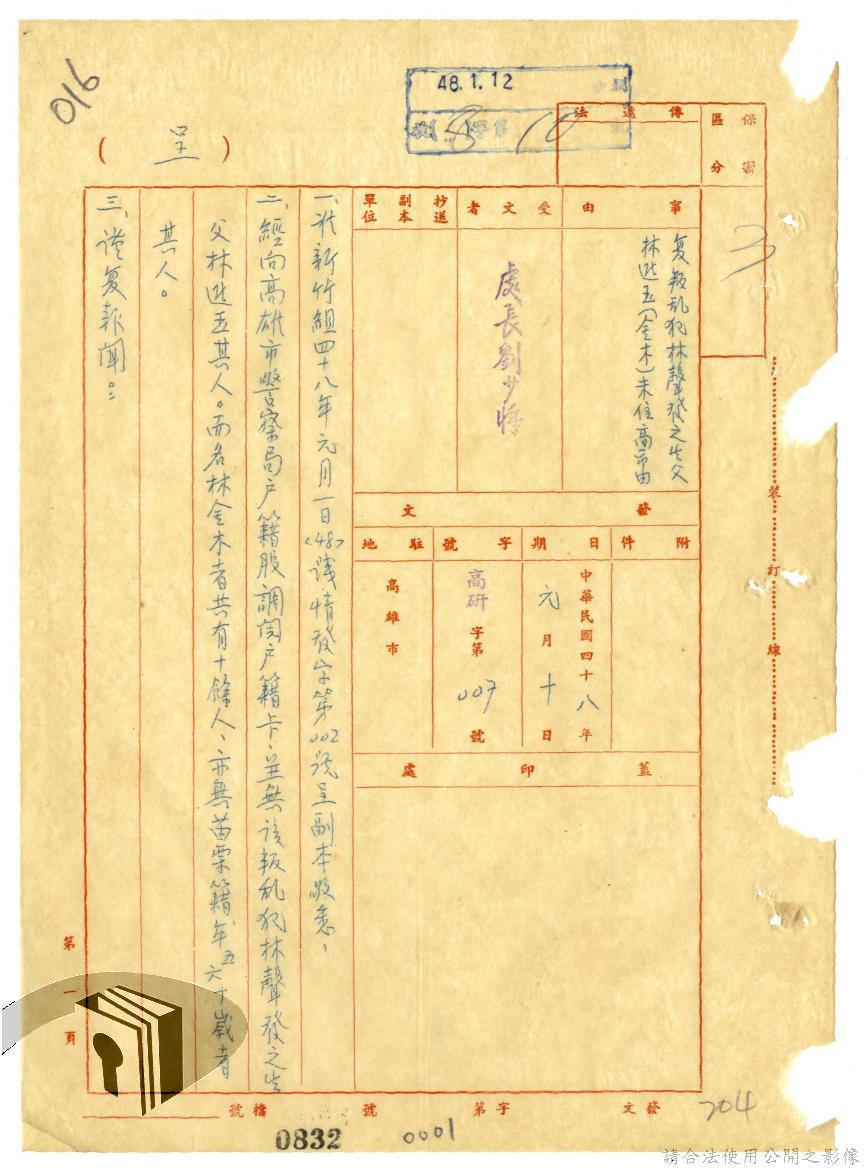 016
48.1.12
(呈)
傳遞法
保密
區分
事由
复叛乱犯林聲發之生父
林進五(金木)未住高市由
受文者
處長劉少將
抄送
副本
單位
發文
附件
日期
中華民國四十八年
元月十日
字號
高研字第007號
駐地
高雄市
蓋印處
一、新竹組四十八年元月一日(48)議情發字第002號呈副本敬悉、
二、經向高雄市警察局户籍股調閱户籍卡、並無該叛乱犯林聲發之生
父林進五其人。而名林金木者共有十餘人、亦無苗栗籍年五六十歲者
其人。
三、謹复報聞。
裝訂線
第一頁
發文 字第 號
檔號
0832
0001
204
請合法使用公開之影像